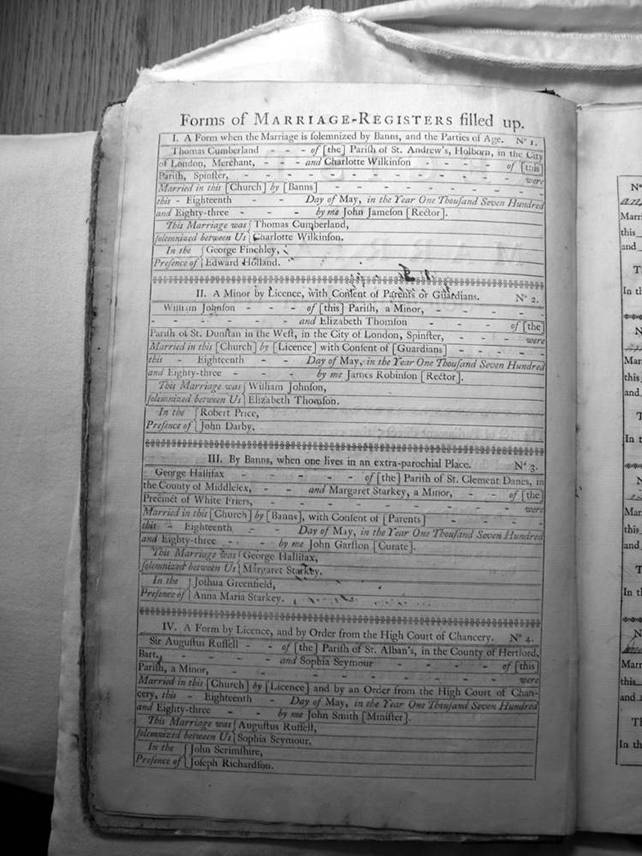 Forms of MARRIAGE-REGISTERS filled up.
I. A Form when the Marriage is solemnized by Banns, and the Parties of Age. N° 1.
Thomas Cumberland - - - of [the] Pariſh of St. Andrew's, Holborn, in the City
of London, Merchant, - - - and Charlotte Wilkinson - - - of [this]
Pariſh, Spinſter, - - - - - - - - - were
Married in this [Church] by [Banns] - - - - - - -
this - Eighteenth - - Day of May, in the Year One Thouſand Seven Hundred
and Eighty-three - - - by me John Jameſon [Rector].
This Marriage was { Thomas Cumberland,
ſolemnized between Us { Charlotte Wilkinſon.
In the { George Finchley,
Preſence of { Edward Holland.
II. A Minor by Licence, with Conſent of Parents or Guardians. N° 2.
William Johnſon - - - of [this] Pariſh, a Minor, - - -
- - - - - - and Elizabeth Thomſon - - - of [the]
Pariſh of St. Dunſtan in the Weſt, in the City of London, Spinſter, - - - were
Married in this [Church] by [Licence] with Conſent of [Guardians] - - -
this - Eighteenth - - Day of May, in the Year One Thouſand Seven Hundred
and Eighty-three - - - by me James Robinſon [Rector].
This Marriage was { William Johnſon,
ſolemnized between Us { Elizabeth Thomſon.
In the { Robert Price,
Preſence of { John Darby.
III. By Banns, when one lives in an extra-parochial Place. N° 3.
George Hallifax - - - - of [the] Pariſh of St. Clement Danes, in
the County of Middleſex, - - and Margaret Starkey, a Minor, - - of [the]
Precinct of White Friers, - - - - - - - - were
Married in this [Church] by [Banns], with Conſent of [Parents] - - -
this - Eighteenth - - Day of May, in the Year One Thouſand Seven Hundred
and Eighty-three - - by me John Garſton [Curate].
This Marriage was { George Hallifax,
ſolemnized between Us { Margaret Starkey.
In the { Joſhua Greenfield,
Preſence of { Anna Maria Starkey.
IV. A Form by Licence, and by Order from the High Court of Chancery. N° 4.
Sir Auguſtus Ruſſell - - of [the] Pariſh of St. Alban's, in the County of Hertford,
Bart. - - - - and Sophia Seymour - - - - of [this]
Pariſh, a Minor, - - - - - - - - were
Married in this [Church] by [Licence] and by an Order from the High Court of Chan-
cery, this - Eighteenth - Day of May, in the Year One Thouſand Seven Hundred
and Eighty-three - - - by me John Smith [Miniſter].
This Marriage was { Auguſtus Ruſſell,
ſolemnized between Us { Sophia Seymour,
In the { John Scrimſhire,
Preſence of { Joſeph Richardſon.